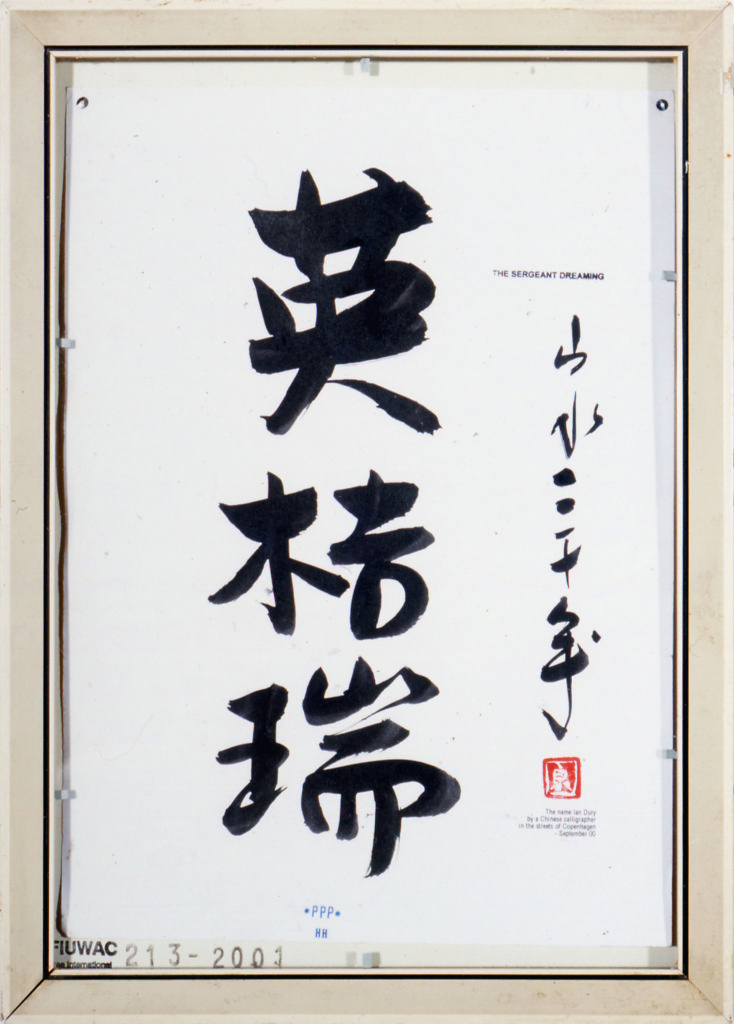 英桔瑞
THE SERGEANT DREAMING
山水二千年
The name Ian Dury
by a Chinese calligrapher
in the streets of Copenhagen
- September 00
*PPP*
HH
FIUWAC 213-2001
International